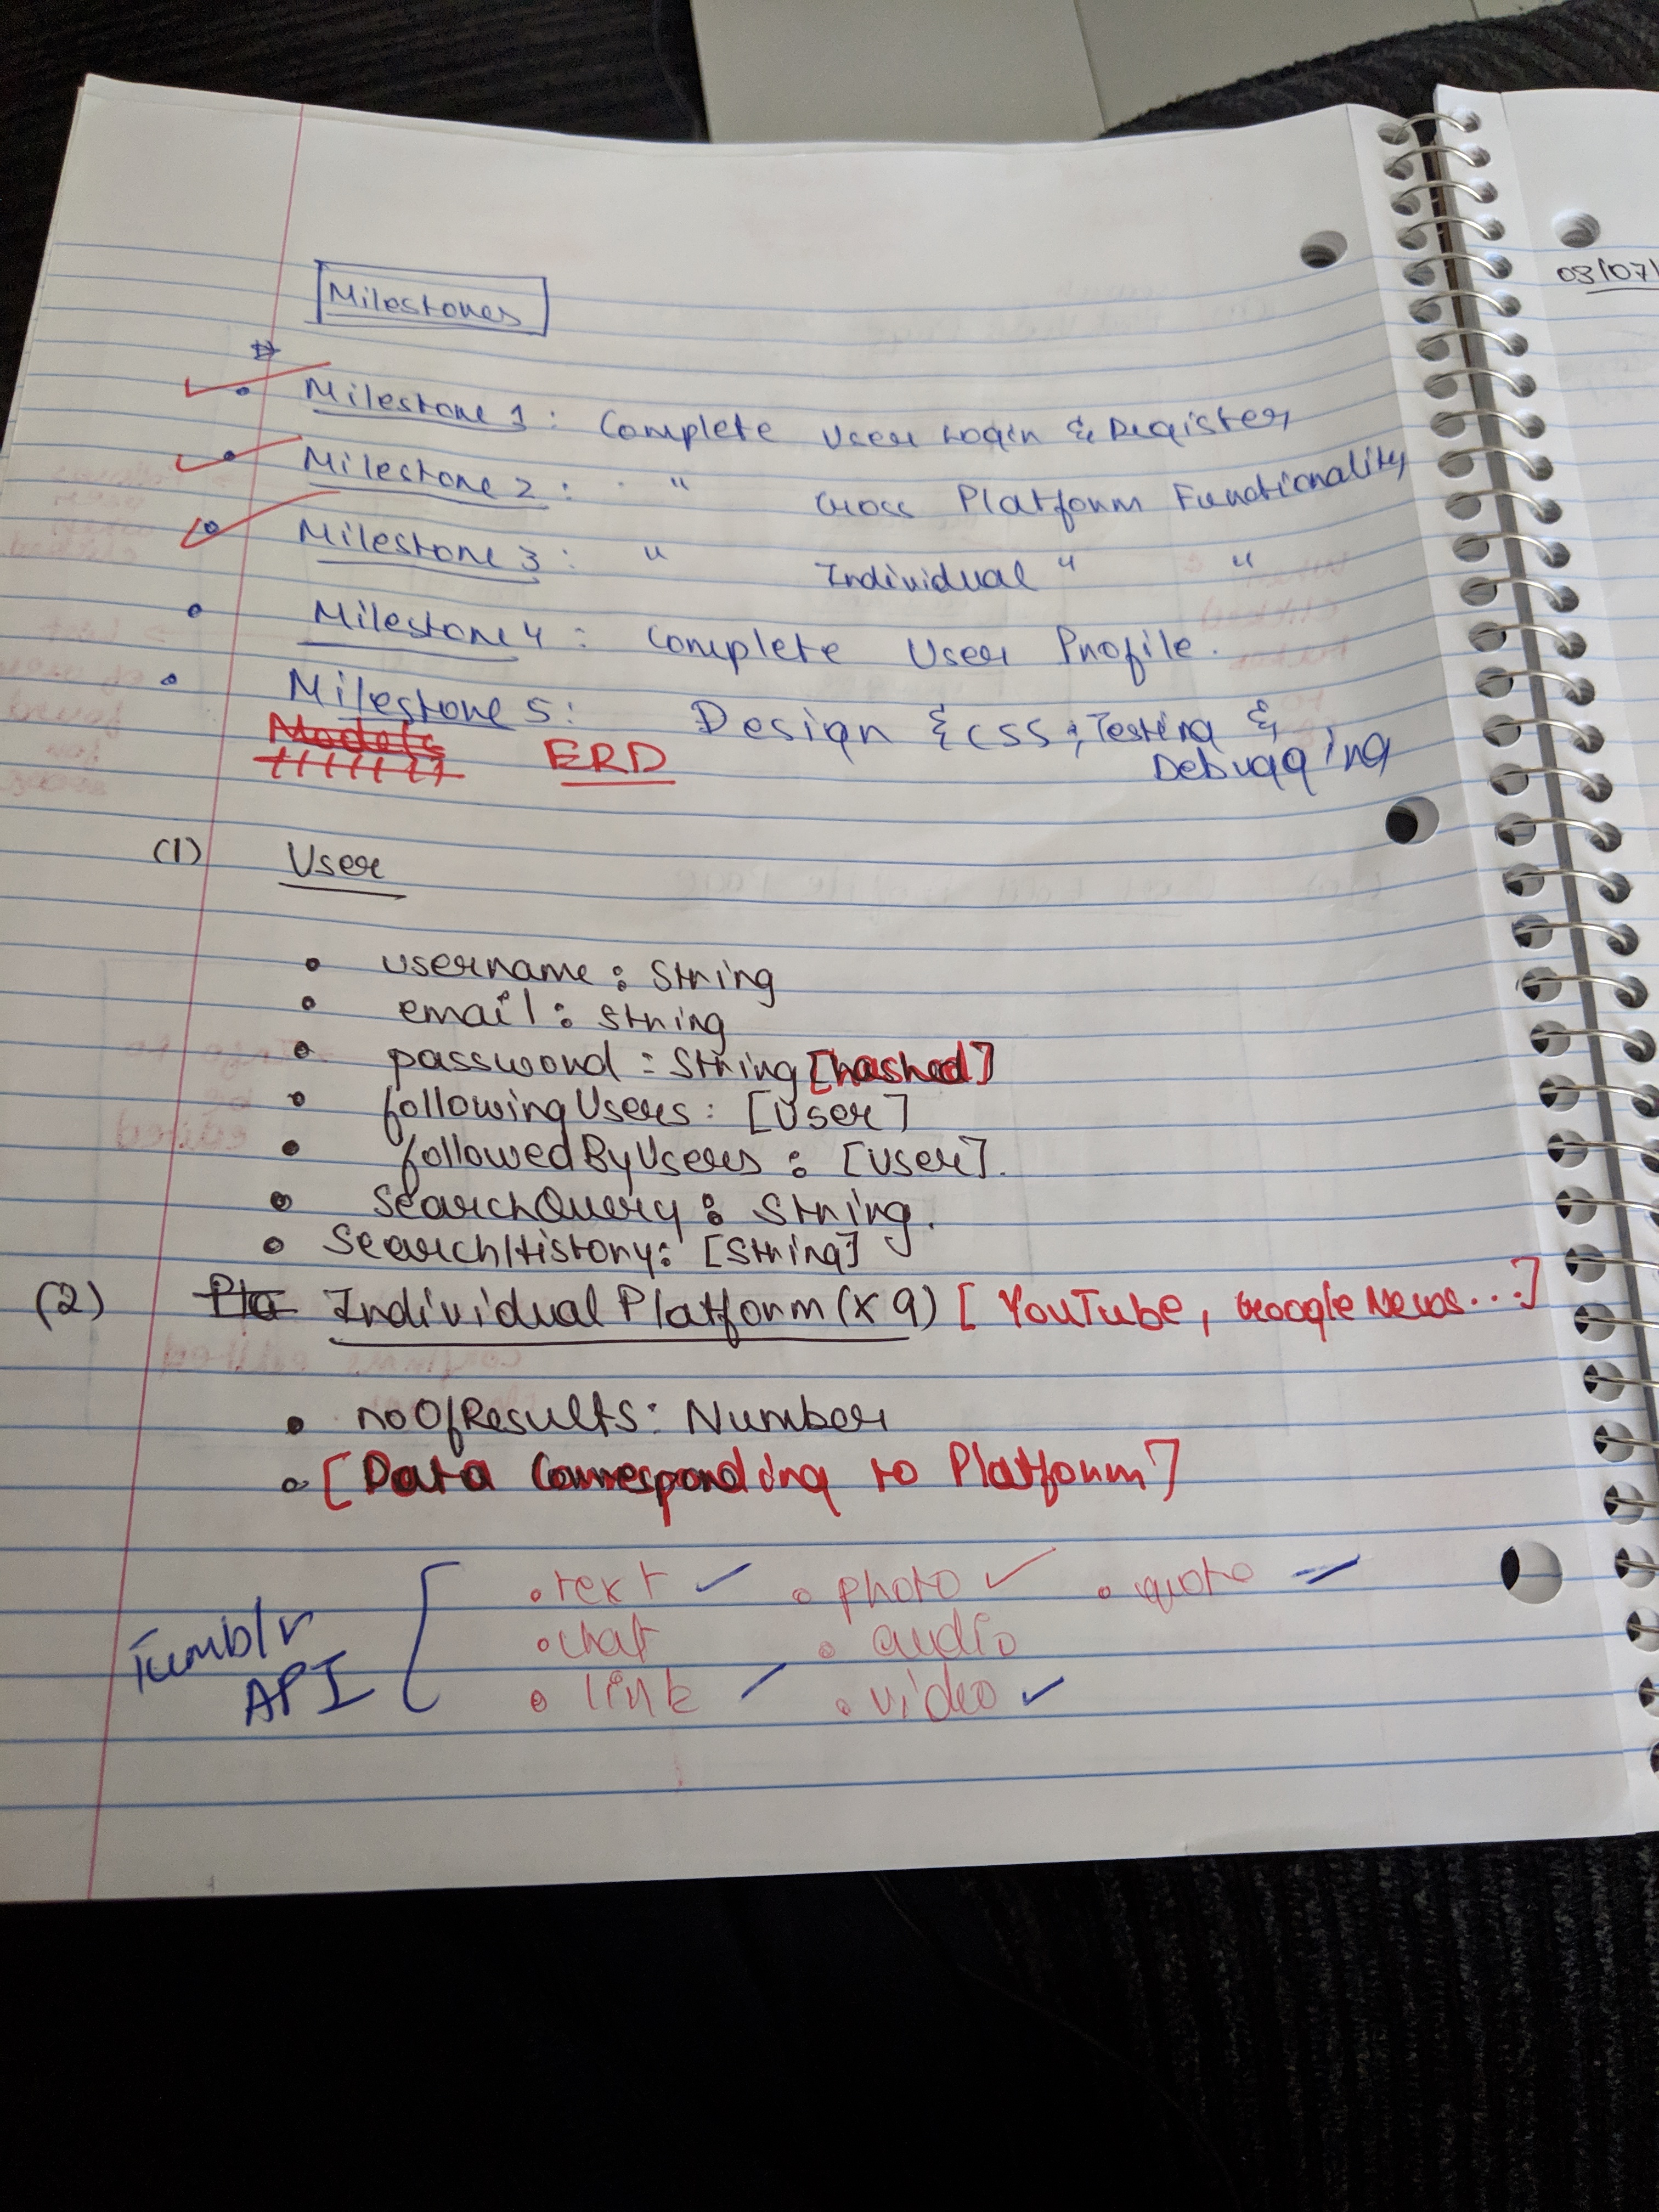 Milestones
Milestone 1: Complete User Login & Register
Milestone 2: " Cross Platform Functionality
Milestone 3: " Individual " "
Milestone 4: Complete User Profile.
Milestone 5: Design & CSS; Testing &
Debugging
Models ERD
(1) User
username: String
email: String
password: String [hashed]
followingUsers: [User]
followedByUsers: [User].
SearchQuery: String.
SearchHistory: [String]
(2) Pla Individual Platform (x 9) [YouTube, Google News...]
noOfResults: Number
[Data Corresponding to Platform]
Tumblr API
text photo quote
chat audio
link video
03/07/